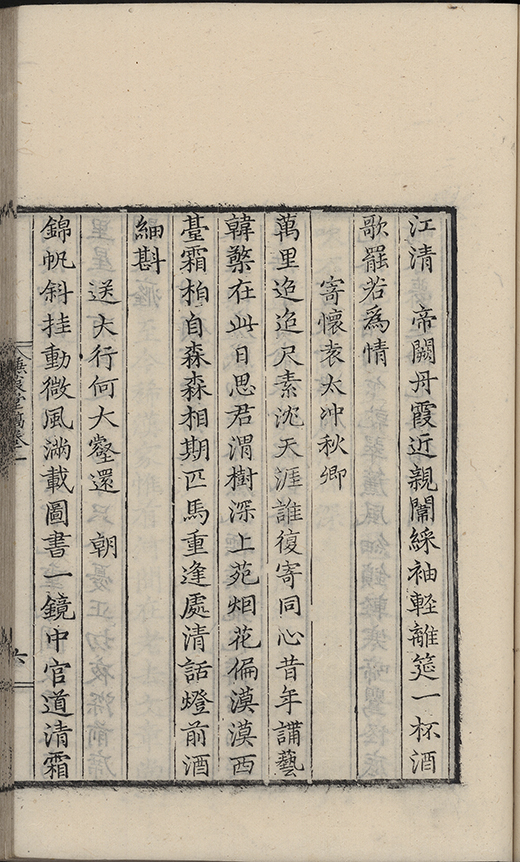 江清　帝闕丹霞近親闈綵袖輕離筵一杯酒
歌罷若爲情
寄懷袁太冲秋卿
萬里迢迢尺素沈天涯誰復寄同心昔年講藝
韓檠在此日思君渭樹深上苑烟花偏漠漠西
臺霜柏自森森相期匹馬重逢處清話燈前酒
細斟
送大行何大壑還　朝
錦帆斜挂動微風滿載圖書一鏡中官道清霜
六